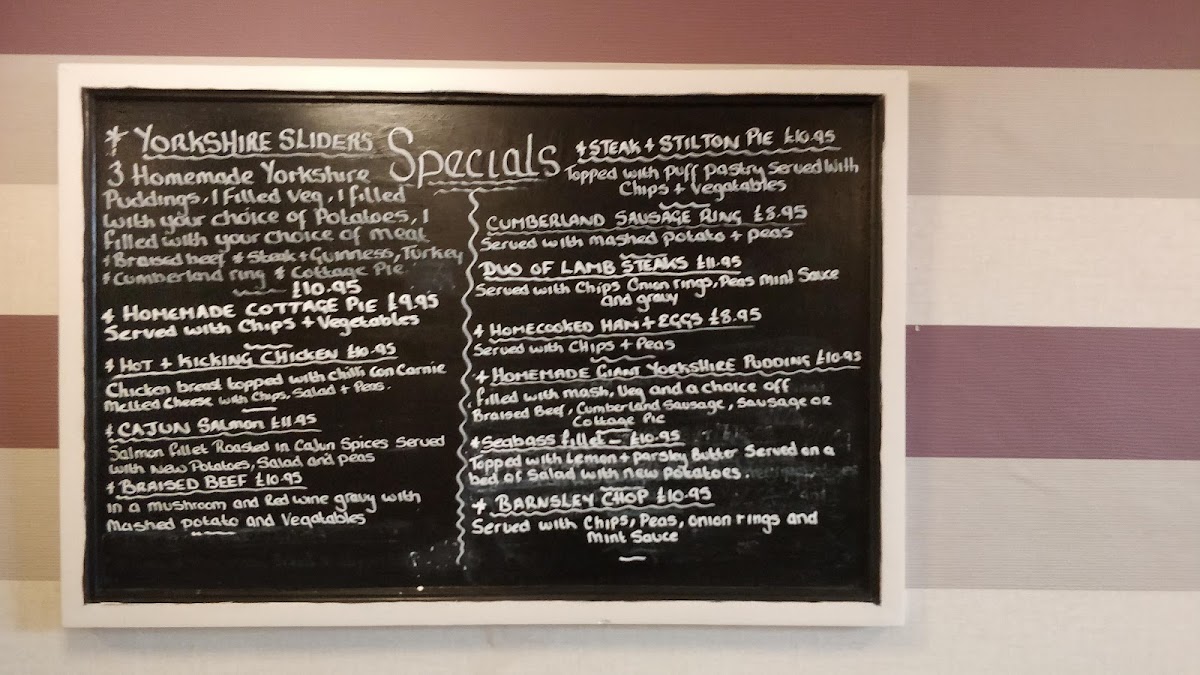 Specials
* YORKSHIRE SLIDERS
3 Homemade Yorkshire
Puddings, 1 Filled Veg, 1 filled
with your choice of Potatoes, 1
filled with your choice of meat
* Braised beef * Steak + Guinness, Turkey
* Cumberland ring * Cottage Pie
£10.95
* HOMEMADE COTTAGE PIE £9.95
Served with Chips + Vegetables
* HOT + KICKING CHICKEN £10.95
Chicken breast topped with Chilli Con Carnie
Melted Cheese with Chips, Salad + Peas.
* CAJUN SALMON £11.95
Salmon fillet Roasted in Cajun Spices Served
with New Potatoes, Salad and peas
* BRAISED BEEF £10.95
in a mushroom and Red wine gravy with
Mashed potato and Vegatables
* STEAK + STILTON PIE £10.95
Topped with Puff Pastry Served with
Chips + Vegatables
CUMBERLAND SAUSAGE RING £8.95
Served with Mashed Potato + peas
DUO OF LAMB STEAKS £11.95
Served with Chips Onion rings, Peas Mint Sauce
and gravy
* HOMECOOKED HAM + EGGS £8.95
Served with Chips + Peas
* HOMEMADE GIANT YORKSHIRE PUDDING £10.95
filled with mash, Veg and a choice off
Braised Beef, Cumberland Sausage, Sausage or
Cottage Pie
* Seabass fillet - £10.95
Topped with Lemon + Parsley Butter Served on a
bed of Salad with new potatoes.
* BARNSLEY CHOP £10.95
Served with Chips, Peas, onion rings and
Mint Sauce